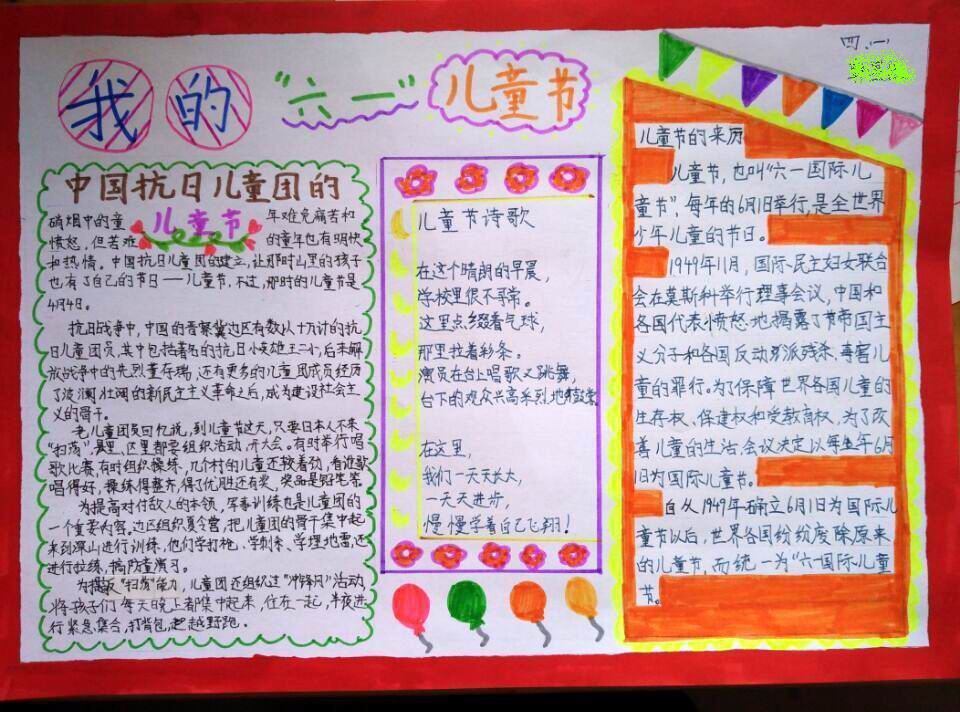 四、(一)
我的“六一”儿童节
中国抗日儿童团的
儿童节
硝烟中的童年难免痛苦和
愤怒,但苦难的童年也有明快
和热情。中国抗日儿童团的建立,让那时山里的孩子
也有了自己的节日——儿童节,不过,那时的儿童节是
4月4日。
抗日战争中,中国的晋察冀边区有数以十万计的抗
日儿童团员,其中包括著名的抗日小英雄王二小,后来解
放战争中的先烈董存瑞,还有更多的儿童团成员经历
了波澜壮阔的新民主主义革命之后,成为建设社会主
义的骨干。
老儿童团员回忆说,到儿童节这天,只要日本人不来
“扫荡”,县里、区里都要组织活动,开大会。有时举行唱
歌比赛,有时组织操练,几个村的儿童还较着劲,看谁歌
唱得好,操练得整齐,得了优胜还有奖,奖品是铅笔等
为提高对付敌人的本领,军事训练也是儿童团的
一个重要内容。边区组织夏令营,把儿童团的骨干集中起
来到深山进行训练,他们学打枪、学刺杀、学埋地雷,还
进行拉练,搞防毒演习。
为提反“扫荡”能力,儿童团还组织过“冲锋凤”活动
将孩子们每天晚上都集中起来,住在一起,半夜进
行紧急集合,打背包,越野跑。
儿童节诗歌
在这个晴朗的早晨,
学校里很不寻常。
这里点缀着气球,
那里拉着彩条。
演员在台上唱歌又跳舞,
台下的观众兴高采烈地鼓掌
在这里,
我们一天天长大,
一天天进步,
慢慢学着自己飞翔!
儿童节的来历
儿童节,也叫“六一国际儿
童节”,每年的6月1日举行,是全世界
少年儿童的节日。
1949年11月,国际民主妇女联合
会在莫斯科举行理事会议,中国和
各国代表愤怒地揭露了帝国主
义分子和各国反动派残杀、毒害儿
童的罪行。为了保障世界各国儿童的
生存权、保健权和受教育权,为了改
善儿童的生活,会议决定以每年6月
1日为国际儿童节。
自从1949年确立6月1日为国际儿
童节以后,世界各国纷纷废除原来
的儿童节,而统一为“六一国际儿童
节。